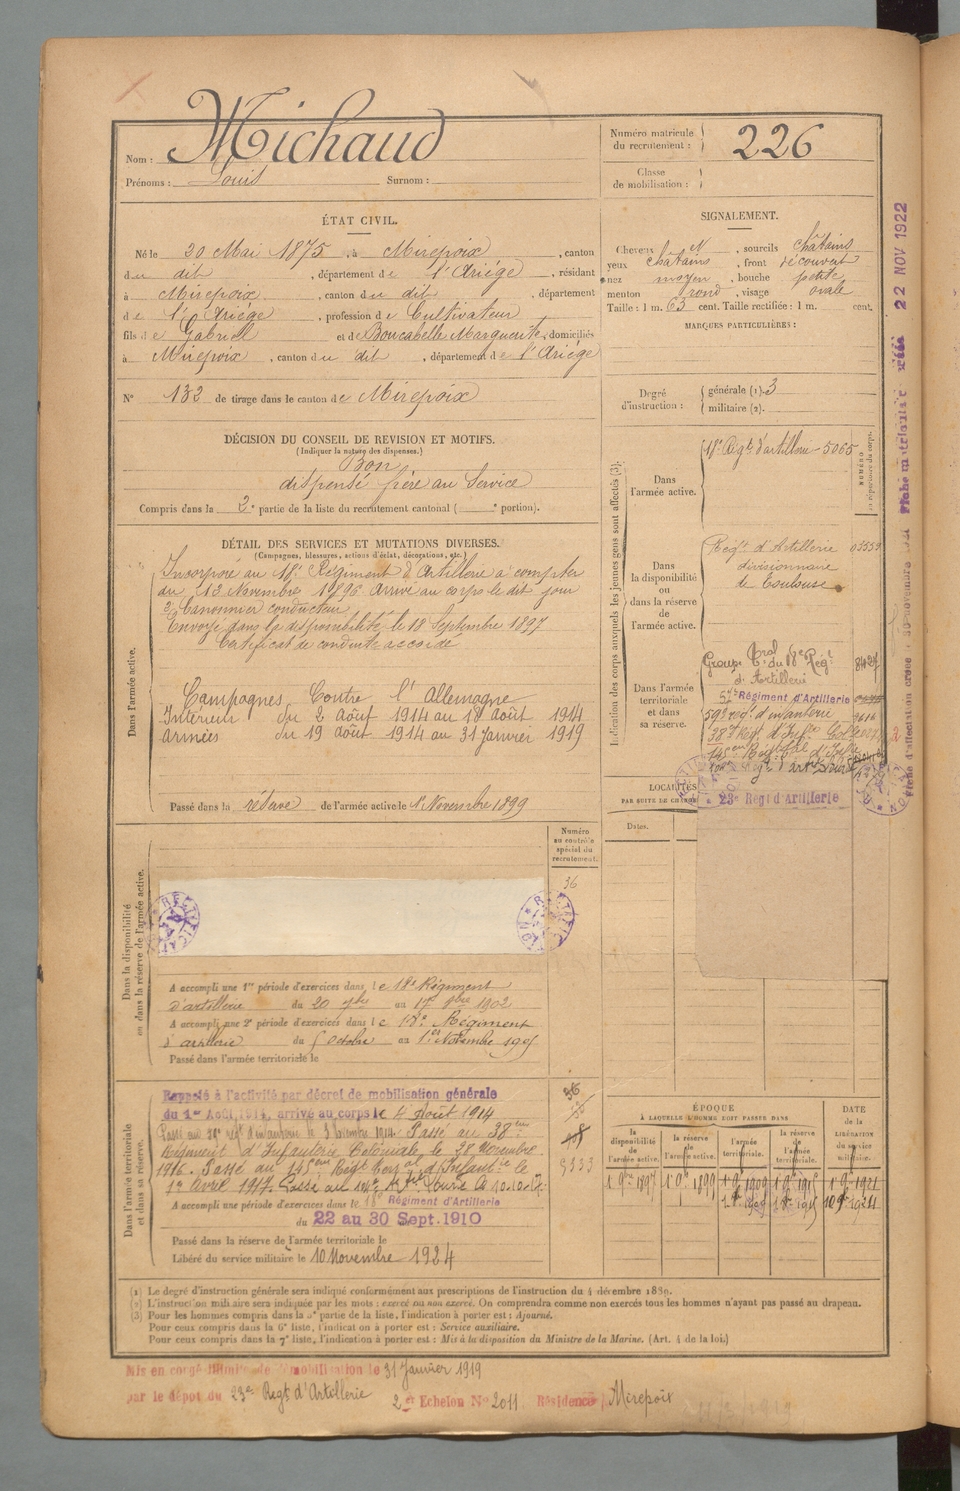 Nom : Michaud
Prénoms : Louis Surnom :
Numéro matricule du recrutement : 226
Classe de mobilisation :
ÉTAT CIVIL.
Né le 20 Mai 1875, à Mirepoix, canton
du dit, département de l'Ariège, résidant
à Mirepoix, canton du dit, département
de l'Ariège, profession de Cultivateur
fils de Gabriel et de Boucabelle Marguerite, domiciliés
à Mirepoix, canton du dit, département de l'Ariège
N° 132 de tirage dans le canton de Mirepoix
SIGNALEMENT.
Cheveux, sourcils châtains
yeux châtains, front découvert
nez moyen, bouche petite
menton rond, visage ovale
Taille : 1 m. 63 cent. Taille rectifiée : 1 m. cent.
MARQUES PARTICULIÈRES :
Degré d'instruction : générale (1). 3
militaire (2).
DÉCISION DU CONSEIL DE REVISION ET MOTIFS.
(Indiquer la nature des dispenses.)
Bon
dispensé frère au Service
Compris dans la 2e partie de la liste du recrutement cantonal ( e portion).
DÉTAIL DES SERVICES ET MUTATIONS DIVERSES.
(Campagnes, blessures, actions d'éclat, décorations, etc.)
Dans l'armée active.
Incorporé au 18e Régiment d'Artillerie à compter
du 13 Novembre 1896. Arrivé au corps le dit jour
2e Canonnier conducteur
Envoyé dans la disponibilité le 18 Septembre 1897
Certificat de conduite accordé
Campagnes Contre l'Allemagne
Intérieur du 2 Août 1914 au 18 Août 1914
Armées du 19 août 1914 au 31 Janvier 1919
Passé dans la réserve de l'armée active le 1er Novembre 1899
Indication des corps auxquels les jeunes gens sont affectés (3).
Dans l'armée active.
18e Régt d'artillerie - 5065
NUMÉRO au répertoire du corps.
Dans la disponibilité ou dans la réserve de l'armée active.
Régt d'Artillerie 03559
divisionnaire
de Toulouse
Dans l'armée territoriale et dans sa réserve.
Groupe Trial du 18e Régt
d'Artillerie
57e Régiment d'Artillerie
59e régt d'infanterie
38e Régt d'Infie Colale
145e Régt Tal d'Infie
23e Régt d'Artillerie
22 NOV 1922
LOCALITÉS
PAR SUITE DE CHANGE
Dates.
Dans la disponibilité ou dans la réserve de l'armée active.
Numéro au contrôle spécial du recrutement.
36
A accompli une 1re période d'exercices dans le 18e Régiment
d'artillerie du 20 7bre au 17 8bre 1902
A accompli une 2e période d'exercices dans le 18e Régiment
d'artillerie du 5 Octobre au 1er Novembre 1905
Passé dans l'armée territoriale le
Dans l'armée territoriale et dans sa réserve.
Rappelé à l'activité par décret de mobilisation générale
du 1er Août 1914, arrivé au corps le 4 août 1914
Passé au 59e régt d'infanterie le 3 Novembre 1914. Passé au 38eme
Régiment d'Infanterie Coloniale le 28 Novembre
1916. Passé au 145eme Régt Teral d'Infantie le
1er Avril 1917. Passé au
A accompli une période d'exercices dans le 18e Régiment d'Artillerie
du 22 au 30 Sept. 1910
Passé dans la réserve de l'armée territoriale le
Libéré du service militaire le 10 Novembre 1924
ÉPOQUE
À LAQUELLE L'HOMME DOIT PASSER DANS
DATE DE LA LIBÉRATION DU service militaire.
la disponibilité de l'armée active.
la réserve de l'armée active.
l'armée territoriale.
la réserve de l'armée territoriale.
(1) Le degré d'instruction générale sera indiqué conformément aux prescriptions de l'instruction du 4 décembre 1889.
(2) L'instruction militaire sera indiquée par les mots : exercé ou non exercé. On comprendra comme non exercés tous les hommes n'ayant pas passé au drapeau.
(3) Pour les hommes compris dans la 5e partie de la liste, l'indication à porter est : Ajourné.
Pour ceux compris dans la 6e liste, l'indication à porter est : Service auxiliaire.
Pour ceux compris dans la 7e liste, l'indication à porter est : Mis à la disposition du Ministre de la Marine. (Art. 4 de la loi.)
Mis en congé illimité de démobilisation le 31 Janvier 1919
par le dépôt du 23e Régt d'Artillerie 2e Echelon No 2011 Résidence Mirepoix